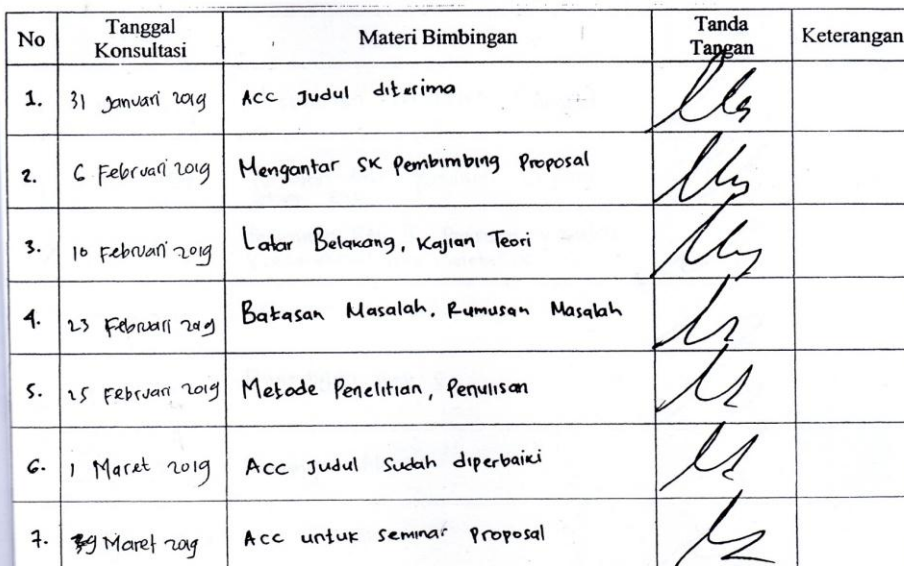 No Tanggal Konsultasi Materi Bimbingan Tanda Tangan Keterangan
1. 31 Januari 2019 Acc Judul diterima
2. 6 Februari 2019 Mengantar SK Pembimbing Proposal
3. 10 Februari 2019 Latar Belakang, Kajian Teori
4. 23 Februari 2019 Batasan Masalah, Rumusan Masalah
5. 25 Februari 2019 Metode Penelitian, Penulisan
6. 1 Maret 2019 Acc Judul Sudah diperbaiki
7. Maret 2019 Acc untuk seminar Proposal